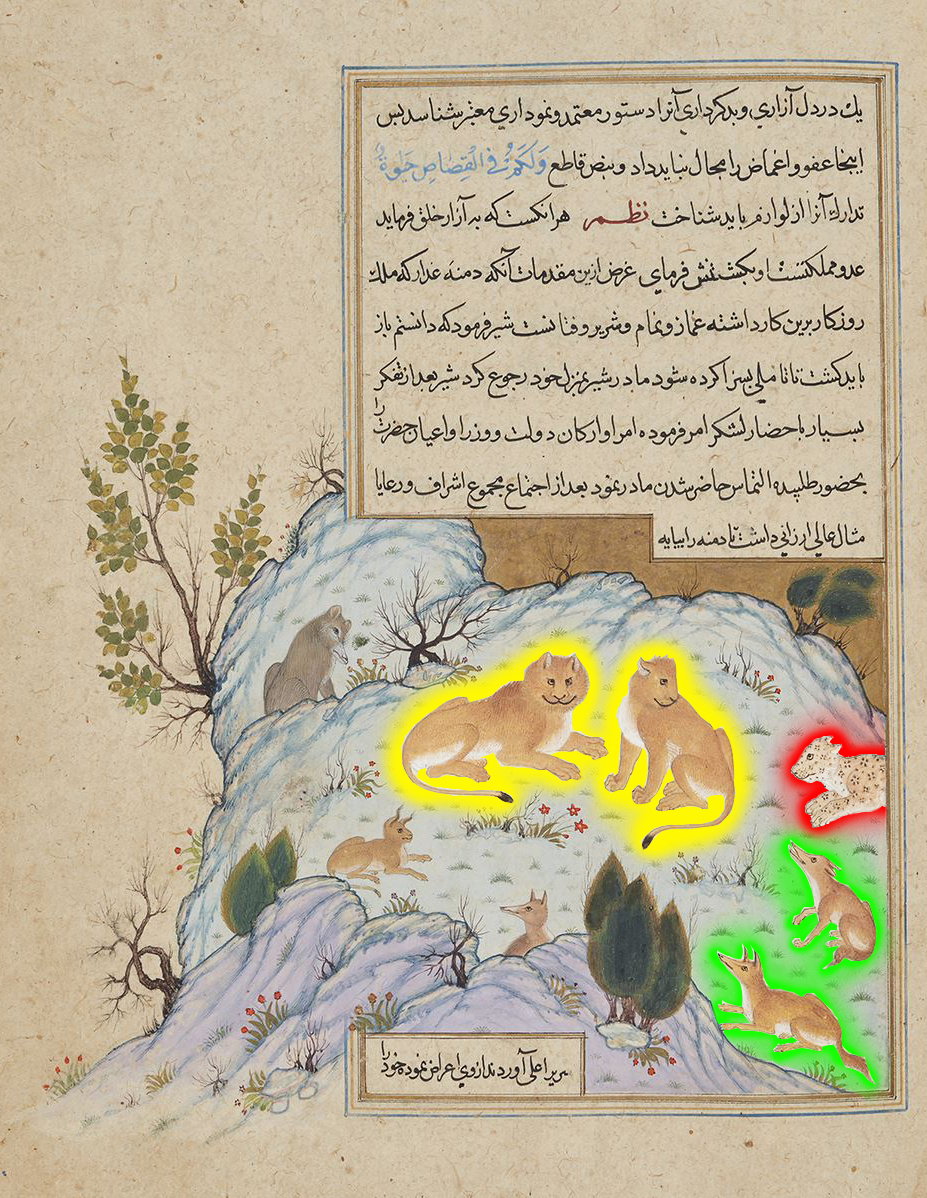 یك در دل آزاري و بدکرداري آنرا دستور معتمد و نموداري معتبر شناسد پس
اینجا عفو و اغماض را مجال نباید داد و بنص قاطع وَلَكُمْ فِي الْقِصَاصِ حَيٰوةٌ
تدارك آنرا از لوازم باید شناخت نظم هر انکست که به آزار خلق فرماید
عدو مملکتست او بکشتنش فرمای غرض ازین مقدمات آنکه دمنه غدار که ملك
روزکار برین کار داشته غماز و نمام و شریر و فتانست شیر فرمود که دانستم باز
باید کشت تا تاملی بسزا کرده شود مادر شیر بمنزل خود رجوع کرد شیر بعد از تفکر
بسیار باحضار لشکر امر فرموده امرا و ارکان دولت و وزرا و اعیان حضرت را
بحضور طلبیده التماس حاضر شدن مادر نمود بعد از اجتماع مجموع اشراف و رعایا
مثال عالی ارزانی داشت تا دمنه را بپایه
سریر اعلی آوردند از وی اعراض نموده خود را